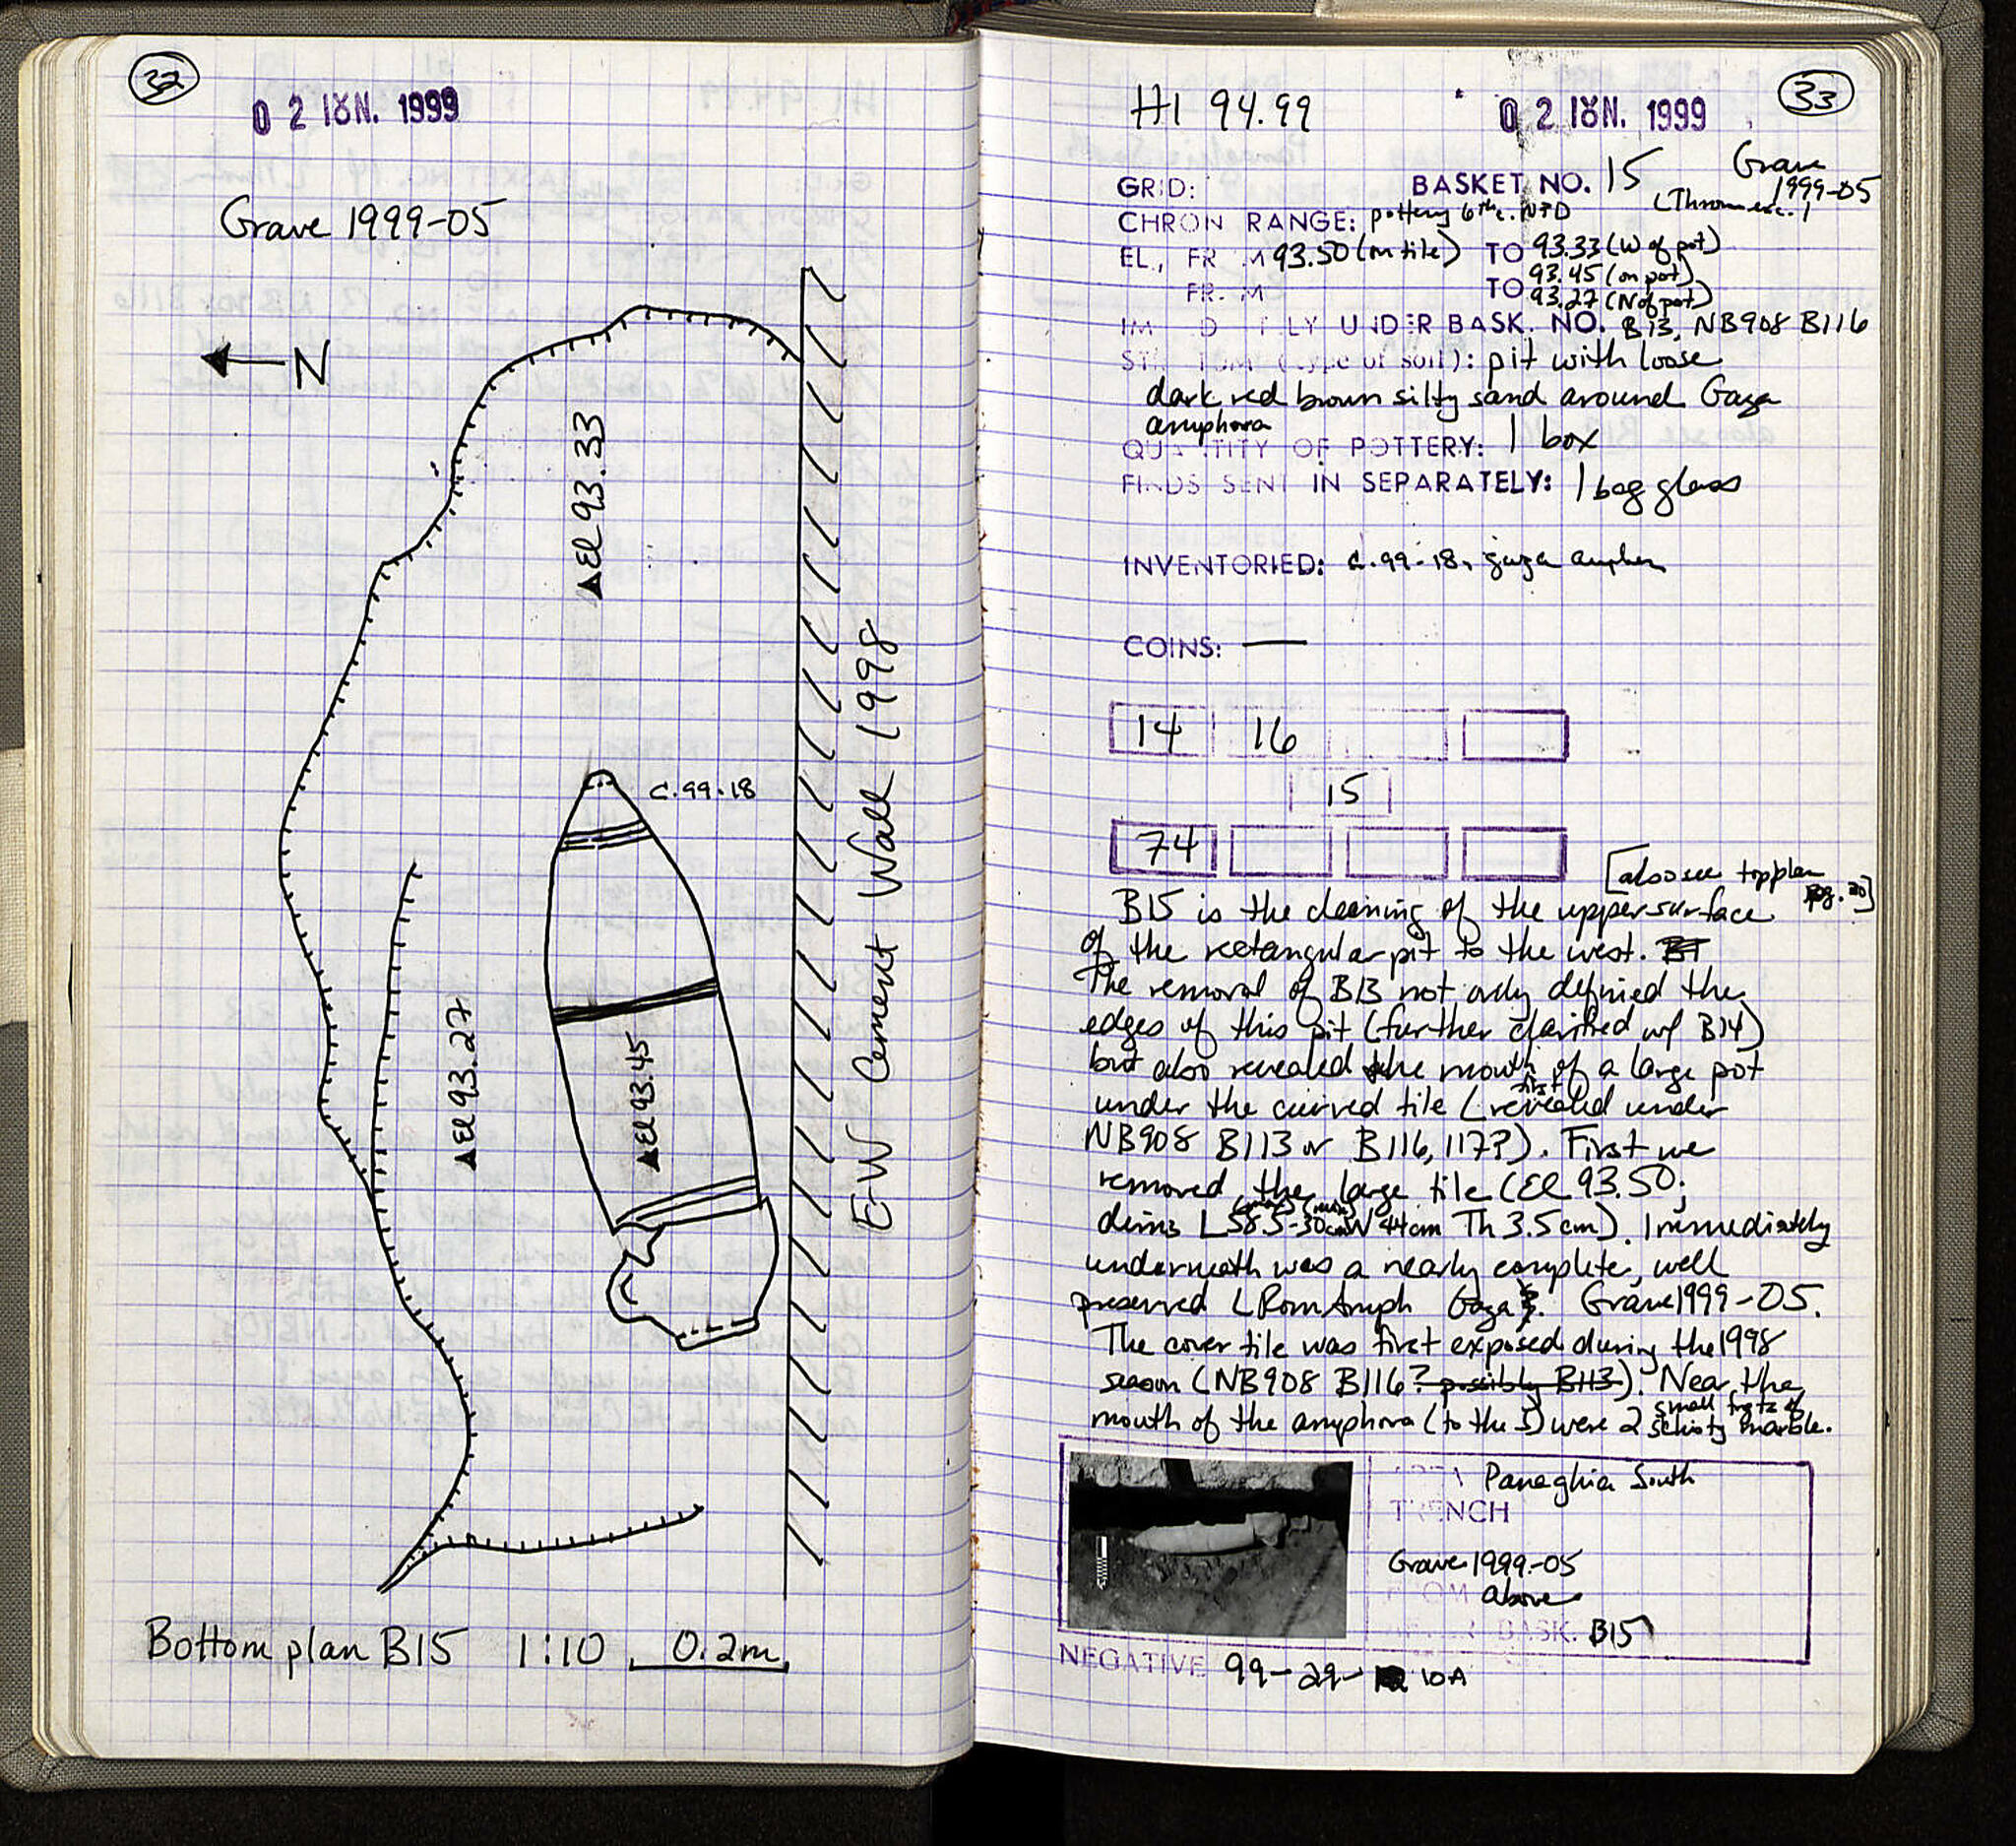 32
02 ΙΟΥΝ. 1999
Grave 1999-05
N
El 93.33
E-W Cement Wall 1998
C.99.18
El 93.27
El 93.45
Bottom plan B15 1:10 0.2m
33
H1 94.99 02 ΙΟΥΝ. 1999
Grave
GRID: BASKET NO. 15 1999-05
CHRON RANGE: pottery 6th c. NFD
EL., FR M 93.50 (on tile) TO 93.33 (W of pot)
TO 93.45 (on pot)
FR. M TO 93.27 (N of pot)
UNDER BASK. NO. B13, NB908 B116
(type of soil): pit with loose
dark red brown silty sand around Gaza
amphora
QUANTITY OF POTTERY: 1 box
FINDS SENT IN SEPARATELY: 1 bag glass
INVENTORIED: C.99-18, gaza amphora
COINS: —
14 16
15
74
[also see top plan
pg. 20]
B15 is the cleaning of the upper surface
of the rectangular pit to the west.
The removal of B13 not only defined the
edges of this pit (further clarified w/ B14)
but also revealed the mouth of a large pot
first
under the curved tile (revealed under
NB908 B113 or B116, 117?). First we
removed the large tile (El 93.50;
(max) (min)
dims L 58.5-30cm W 44cm Th 3.5cm). Immediately
underneath was a nearly complete, well
preserved LRom Amph Gaza. Grave 1999-05.
The cover tile was first exposed during the 1998
season (NB908 B116? possibly B113). Near the
small frgts of
mouth of the amphora (to the S) were 2 schisty marble.
Panaghia South
TRENCH
Grave 1999-05
FROM above
BASK. B15
NEGATIVE 99-29- 10A